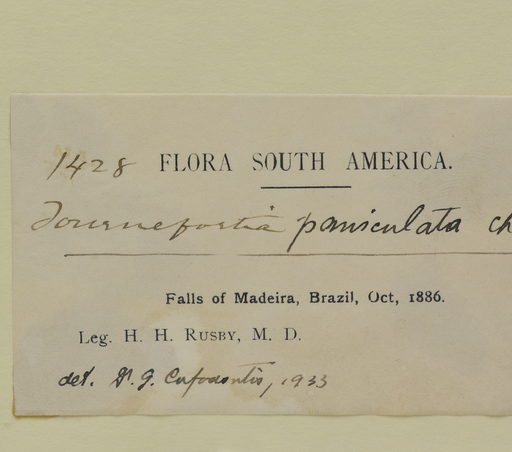 1428 FLORA SOUTH AMERICA.
Tournefortia paniculata ch
Falls of Madeira, Brazil, Oct, 1886.
Leg. H. H. RUSBY, M. D.
det. Dr. G. Cufodontis, 1933